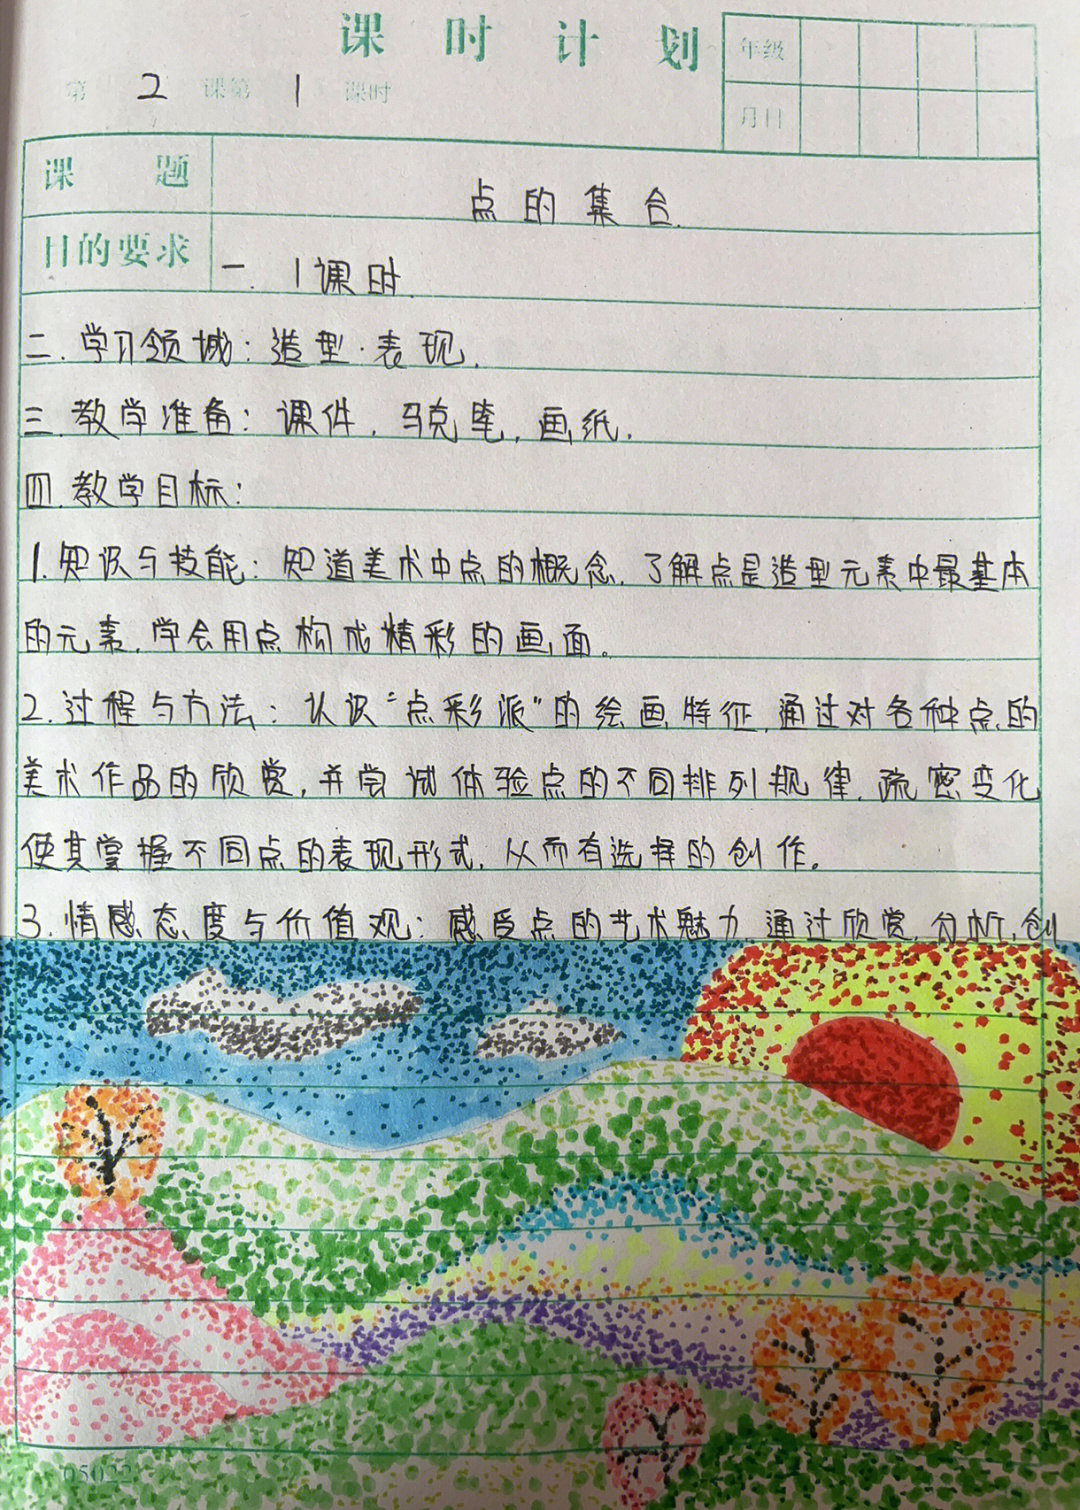 课时计划
年级
第2课第1课时
月日
课题 点的集合.
目的要求 一. 1课时.
二. 学习领城: 造型·表现.
三. 教学准备: 课件, 马克笔, 画纸.
四. 教学目标:
1. 知识与技能: 知道美术中点的概念, 了解点是造型元素中最基本
的元素, 学会用点构成精彩的画面。
2. 过程与方法: 认识“点彩派”的绘画特征, 通过对各种点的
美术作品的欣赏, 并尝试体验点的不同排列规律, 疏密变化
使其掌握不同点的表现形式, 从而有选择的创作。
3. 情感态度与价值观: 感受点的艺术魅力, 通过欣赏, 分析, 创